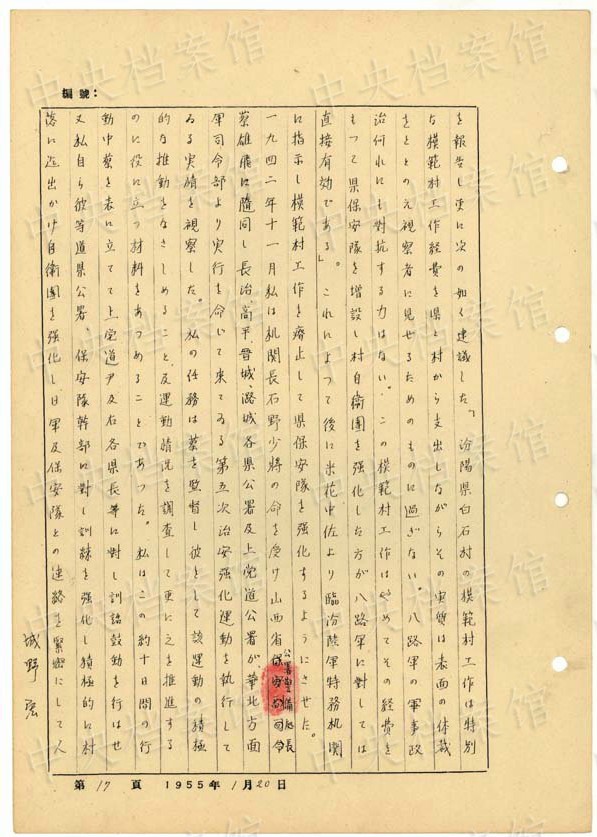 中央档案馆
編號：
を報告し更に次の如く建議した。「汾陽県白石村の模範村工作は特別
な模範村工作経費を県と村から支出しながらその実態は表面の体裁
をととのえ視察者に見せるためのものに過ぎない。八路軍の軍事政
治何れにも対抗する力はない。この模範村工作はやめてその経費を
もつて県保安隊を増設し村自衛團を強化した方が八路軍に対しては
直接有効である」。これによつて後に米花中佐より臨汾陸軍特務機関
に指示し模範村工作を廃止して県保安隊を強化するようにさせた。
一九四二年十一月私は机関長石野少将の命を受け山西省保安司令
公署警備処長
蔡雄飛に随同し長治、高平、晋城、潞城各県公署及上党道公署が華北方面
軍司令部より実行を命じて来てゐる第五次治安強化運動を執行して
ゐる実績を視察した。私の任務は蔡を監督し彼をして該運動の積極
的な推動をなさしめること、及運動情況を調査して更に之を推進する
のに役に立つ材料をあつめることであつた。私はこの約十日間の行
動中蔡を表に立てて上党道尹及右各県長等に対し訓諭鼓動を行はせ
又私自ら彼等道県公署、保安隊幹部に対し訓練を強化し積極的に村
落に進出かけ自衛團を強化し日軍及保安隊との連絡を緊密にして人
城野宏
第17頁 1955年1月20日